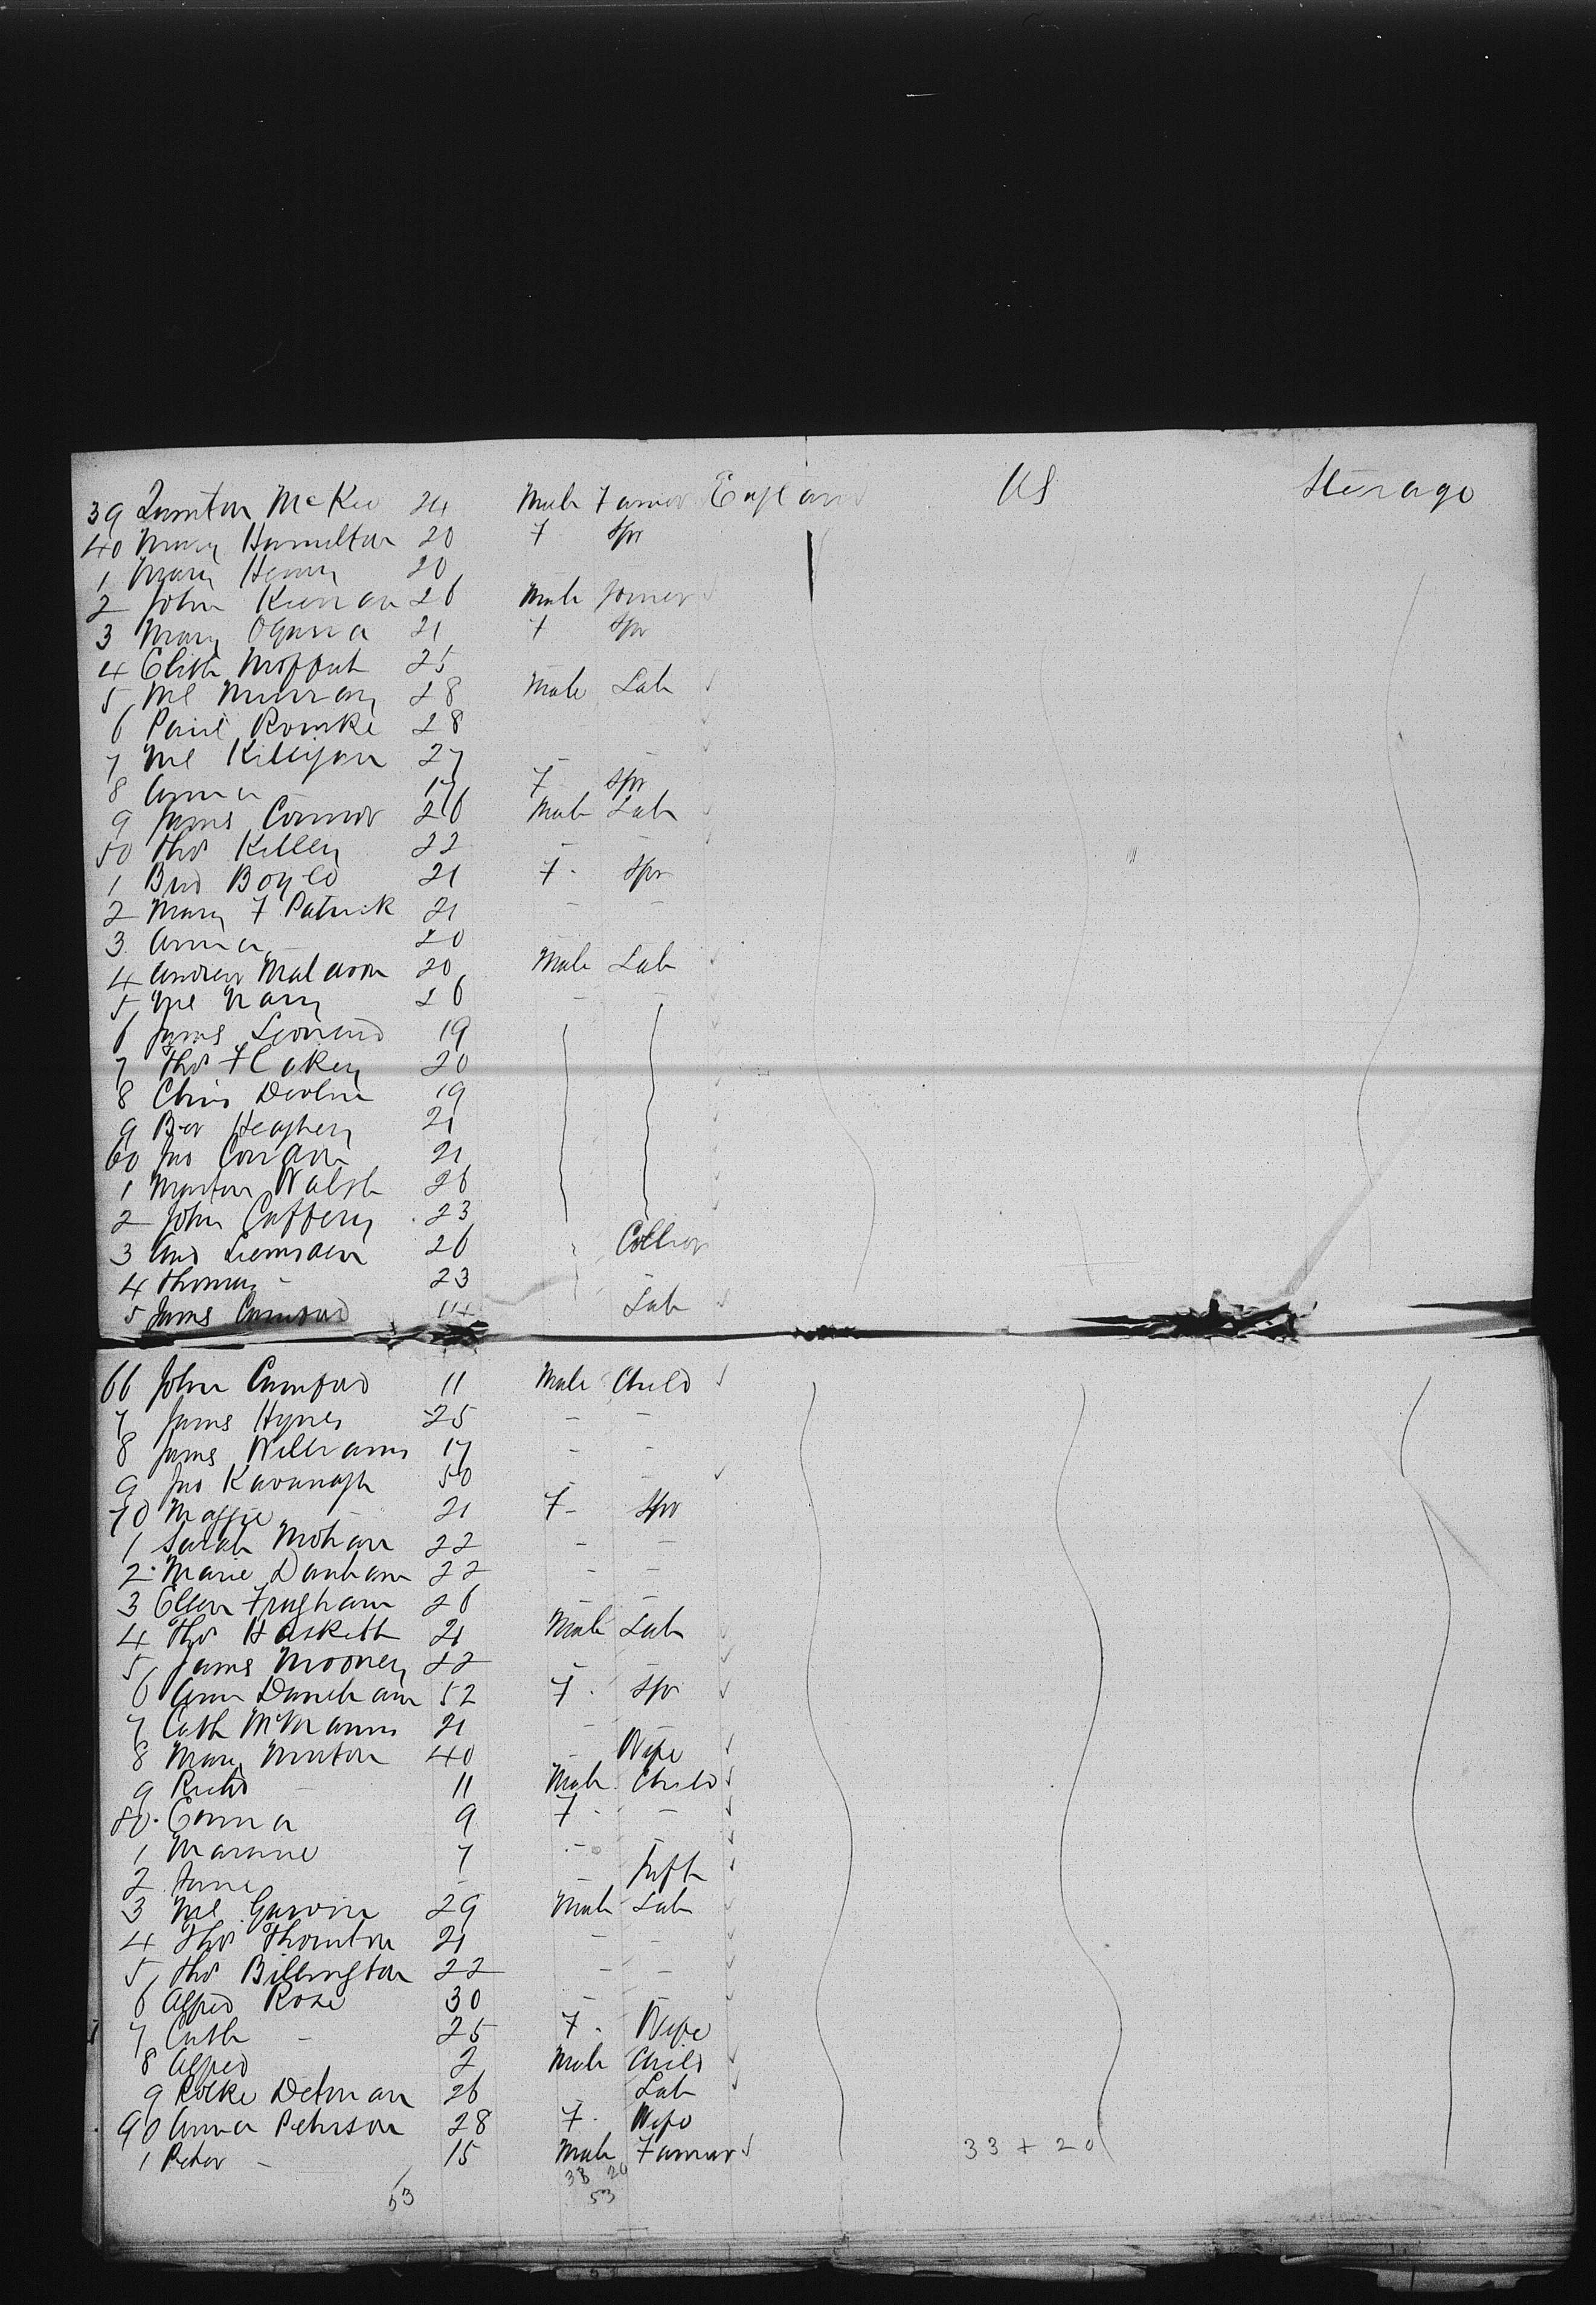 39 Quinton McKee 24 Male Farmer England US Sterage
40 Mary Hamilton 20 F Spr
1 Mary Henry 20
2 John Kiernan 26 Male Joiner
3 Mary OGarra 21 F Spr
4 Elizth Moffat 25
5 Ml Murray 28 Male Lab
6 Pat Rourke 28
7 Ml Killigan 27 - -
8 Anna - 17 F Spr
9 James Connor 26 Male Lab
50 Thos Killey 22 - -
1 Brid Boyle 21 F Spr
2 Mary F Patrick 21 - -
3 Anna - 20 - -
4 Andrew Malavon 20 Male Lab
5 Ml Nary 26 - -
6 James Leonard 19
7 Thos Flakey 20
8 Chris Devlin 19
9 Heaphey 21
60 Jno Condon 21
1 Martin Walsh 26
2 John Caffery 23
3 And Lumsden 26 Collier
4 Thomas - 23
5 James Crawford 14 Lab
66 John Crawford 11 Male Child
7 James Hynes 25 - -
8 James Williams 17 - -
9 Jno Kavanagh 50 - -
70 Maggie - 21 F Spr
1 Sarah Mohan 22 - -
2 Marie Danham 22 - -
3 Ellen 26 - -
4 Thos Haskett 21 Male Lab
5 James Mooney 22 - -
6 Ann Daneham 52 F Spr
7 Cath McManus 21 - -
8 Mary Minton 40 - Wife
9 Richd - 11 Male Child
80 Emma 9 F -
1 7 - -
2 Jane - - Inft
3 Ml Garvin 29 Male Lab
4 Thos Thornton 21 - -
5 Thos Billington 22 - -
6 Alfred Rose 30 - -
7 Cath - 25 F Wife
8 Alfred 2 Male Child
9 Detman 26 - Lab
90 Anna Peterson 28 F Wife
1 Peter - 15 Male Farmer 33 + 20
38 20
53 53